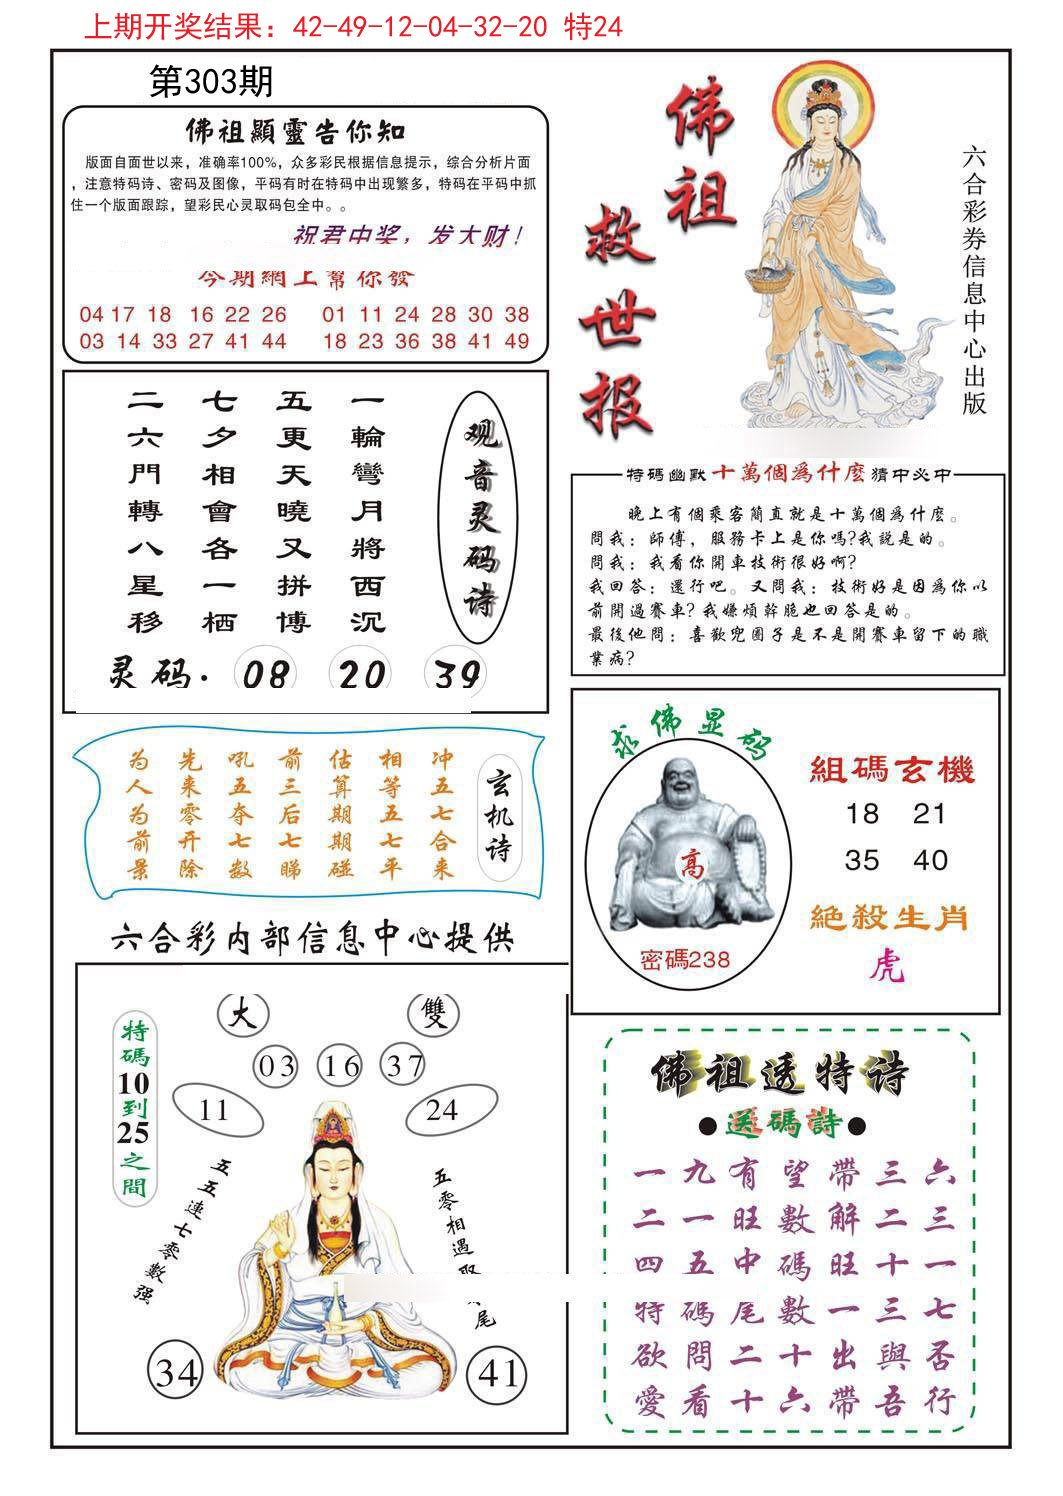 上期开奖结果：42-49-12-04-32-20 特24
第303期
佛祖顯靈告你知
版面自面世以来，准确率100%，众多彩民根据信息提示，综合分析片面
，注意特码诗、密码及图像，平码有时在特码中出现繁多，特码在平码中抓
住一个版面跟踪，望彩民心灵取码包全中。。
祝君中奖，发大财！
今期網上幫你發
04 17 18 16 22 26 01 11 24 28 30 38
03 14 33 27 41 44 18 23 36 38 41 49
佛祖
救世报
六合彩券信息中心出版
观音灵码诗
一輪彎月將西沉
五更天曉又拼博
七夕相會各一栖
二六門轉八星移
灵码· 08 20 39
特碼幽默十萬個為什麼猜中必中
晚上有個乘客簡直就是十萬個為什麼。
問我：師傅，服務卡上是你嗎?我説是的。
問我：我看你開車技術很好啊?
我回答：還行吧。又問我：技術好是因為你以
前開過賽車?我嫌煩幹脆也回答是的。
最後他問：喜歡兜圈子是不是開賽車留下的職
業病?
玄机诗
冲五七合来
相等五七平
估算期期碰
前三后七睇
吼五夺七数
先来零开除
为人为前景
求佛显码
高
密碼238
組碼玄機
18 21
35 40
絕殺生肖
虎
六合彩内部信息中心提供
大 雙
03 16 37
11 24
特碼10到25之間
五五連七零數强
五零相遇 尾
34 41
佛祖透特诗
●送碼詩●
一九有望帶三六
二一旺數解二三
四五中碼旺十一
特碼尾數一三七
欲問二十出與否
愛看十六帶吾行